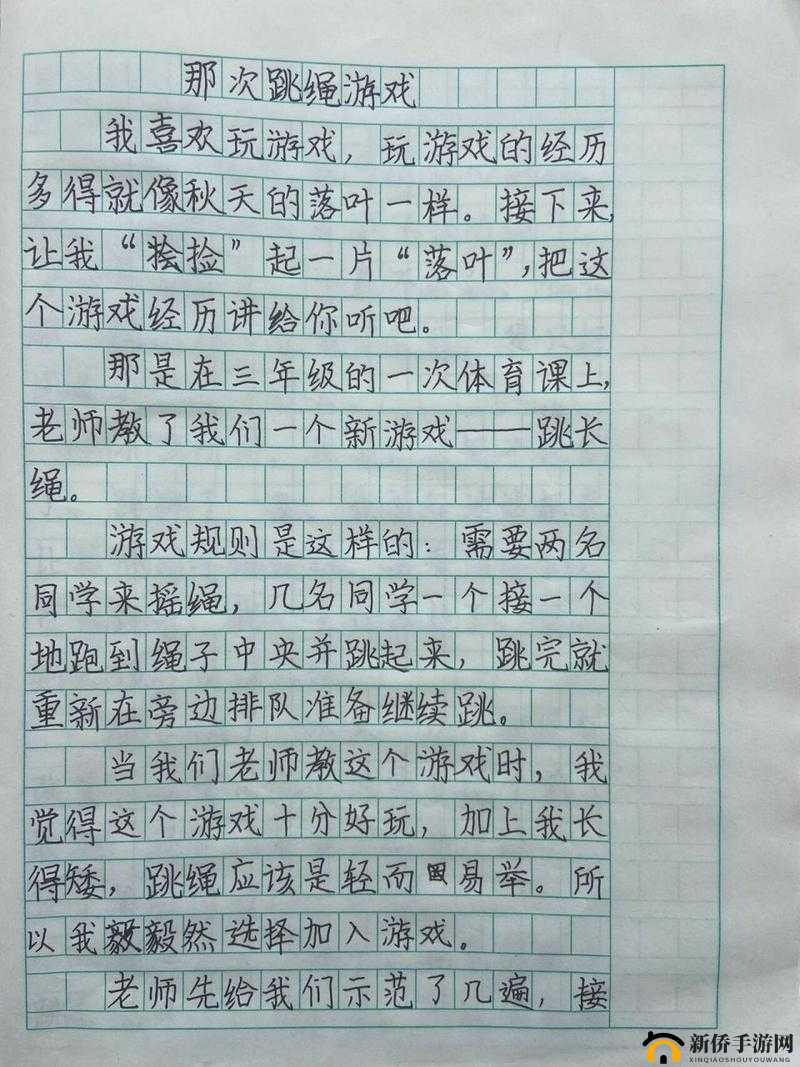 那次跳绳游戏
我喜欢玩游戏，玩游戏的经历
多得就像秋天的落叶一样。接下来，
让我“捡”起一片“落叶”，把这
个游戏经历讲给你听吧。
那是在三年级的一次体育课上，
老师教了我们一个新游戏——跳长
绳。
游戏规则是这样的：需要两名
同学来摇绳，几名同学一个接一个
地跑到绳子中央并跳起来，跳完就
重新在旁边排队准备继续跳。
当我们老师教这个游戏时，我
觉得这个游戏十分好玩，加上我长
得矮，跳绳应该是轻而易举。所
以我毅然选择加入游戏。
老师先给我们示范了几遍，接
新侨手游网
XINQIAOSHOUYOUWANG